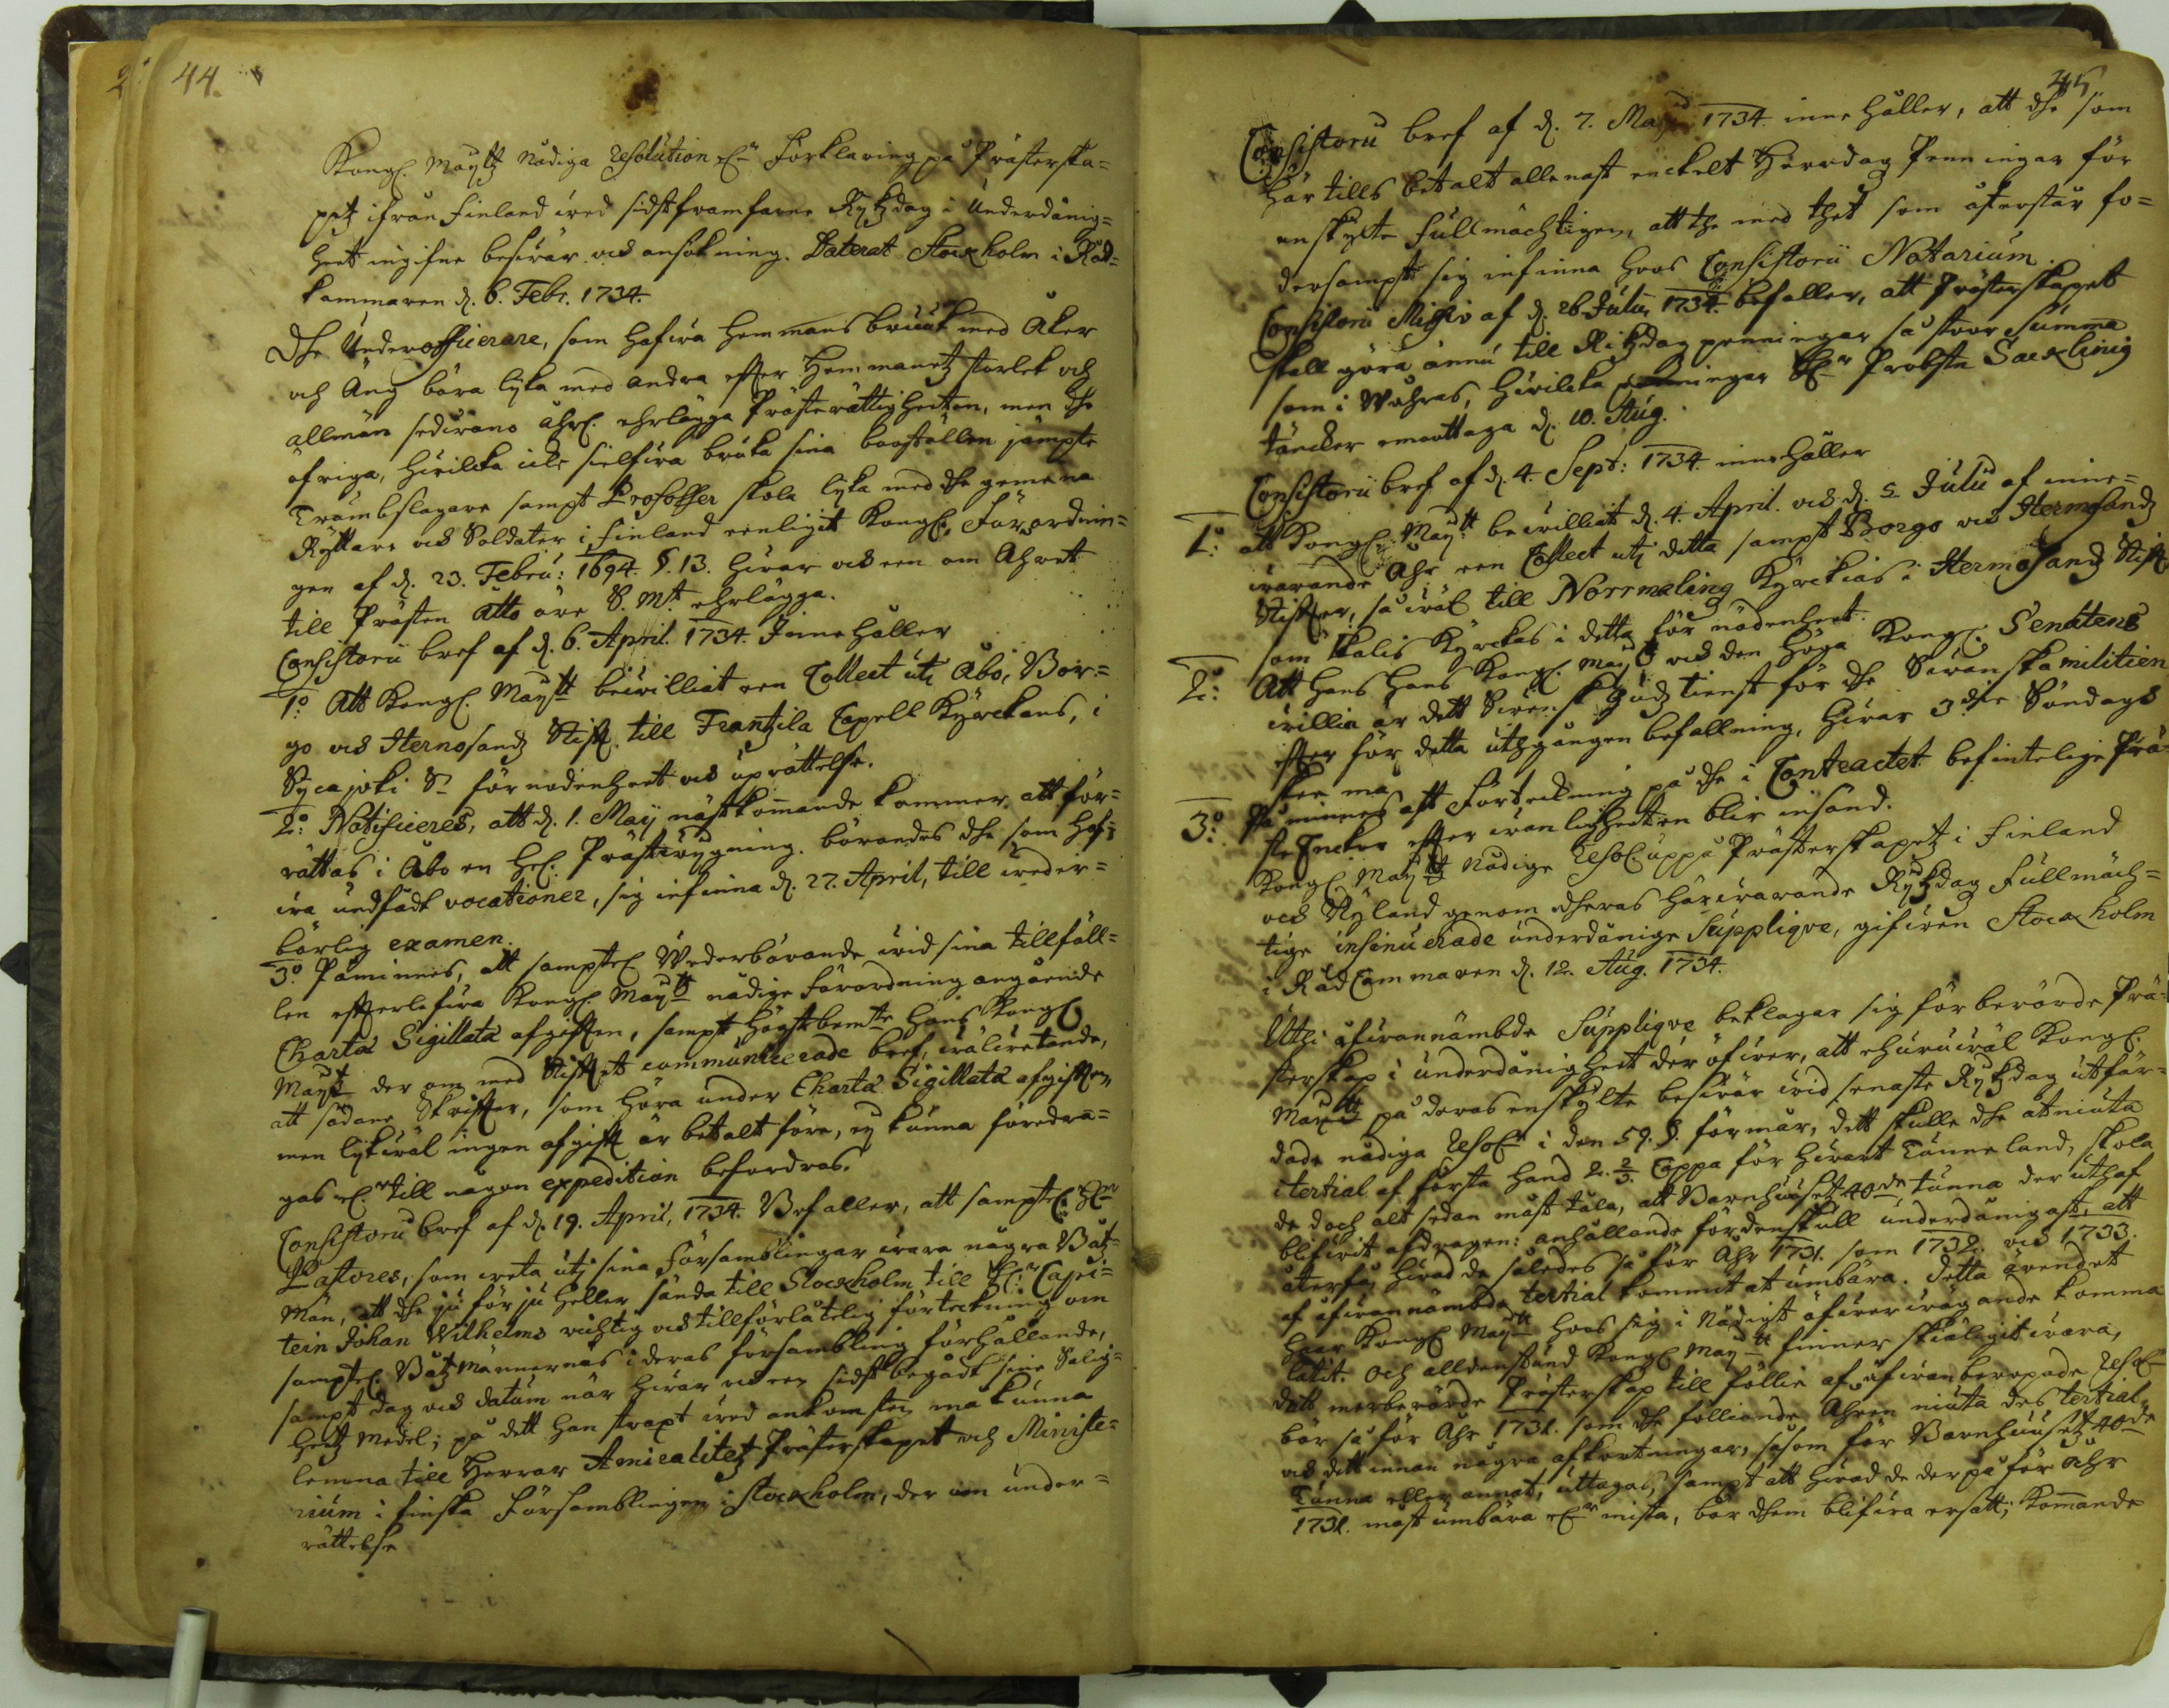 44.
Kongl. Maijtz Nådiga Resolution och Förklaring på Prästerska=
petz ifrån Finland wed sidstframfarne Rijkzdag i Underdånig=
heet ingifne beswär och ansökning. Daterat Stockholm i Råd=
kammaren d. 6. Febr. 1734.
Dhe Underofficerare, som hafwa hemmans bruuk med Åker
och Äng böra lijka med andra effter Hemmanetz storlek och
allmän sedwano åhrl. ehrlägga Prästerättigheeten, men dhe
öfriga, hwilcka icke sielfwa bruka sina bostellen jämpte
Trumbslagare sampt Profosser skola lijka med dhe gemena
Ryttare och Soldater i Finland eenligit Kongl. Förordnin=
gen af d. 23. Febru: 1694. §. 13. hwar och een om Åhret
till Prästen Åtto öre S. Mt. ehrlägga.
Consistorii bref af d. 6. April. 1734. Innehåller
1o. Att Kongl. Maijtt bewilliat een Collect uti Åbo, Bor=
go och Hernosandz Stifft. till Frantzila Capell Kyrckans, i
Sijcajoki Sn förnödenheet och uprättelse.
2o: Notificeres, att d. 1. Maij nästkommande kommer att för=
rättas i Åbo en hel. Prästwygning. börandes dhe som haf=
wa undfådt vocationer, sig infinna d. 27. April, till weder=
börlig examen.
3o. Påminnes, att samptel. Wederbörande wid sina tillfäll=
len effterlefwa Kongl. Maijtts nådige Förordning angående
Charta Sigillata afgifften, sampt Högstbemte Hans Kongl.
Maijtt der om med Stifftet communicerade bref, wäl wetande,
att sådane Skriffter, som höra under Charta Sigillata afgifften
men lijkwäl ingen afgifft är betalt före, ej kunna föredra=
gas elr till någon expedition befordras.
Consistorii bref af d. 19. April, 1734. Befaller, att samptel. Hr
Pastores, som weta uti sina Församblingar wara några Båtz=
män, att dhe ju för ju heller sända till Stockholm till Hr Capi=
tein Johan Wilhelms richtig och tillförlåtelig förteckning om
samptel. Båtzmännernas i deras försambling förhållande,
sampt dag och datum när hwar och een sidst begådt sine Salig=
heetz Medel; på dett han straxt wed ankomsten må kunna
lemna till Herrar Amiralitetz Prästerskapet och Ministe=
rium i finska Församblingen i Stockholm, der om under=
rättelse
45
Consistorii bref af d. 7. Maji 1734. innehåller, att dhe som
här tills betalt allenast enckelt Herredag Penningar för
enskylte Fullmächtigen, att the med thet som återstår fo=
dersampt sig infinna hoos Consistorii Notarium.
Consistorii Missiv af d. 26 Julii 1734. befaller, att Prästerskapet
skall göra ännu till Rikzdag penningar så stoor Summa
som i Wåhras, hwilcka penningar Hr Probsten Sacklinig
täncker emottaga d. 10. Aug.
Consistorii bref af d. 4. Sept: 1734. innehåller
1o: att Kongl. Maijtt bewilliat d. 4. April. och d. 5. Julii af inne=
warande Åhr een Collect uti detta sampt Borgo och Hermosandz
Stiffter, så wäl till Norrmaling Kyrckias i Hermosandz Stifft
som Kalis Kyrckas i detta för nödenheet.
2o: Att hans hans Kongl. Maijtt och den höga Kongl. Senatens
willia är dett Swensk Gudz tienst för dhe Swenska militien
effter för detta uthgången befallning, hwar 3die Söndags
skee må
3o: Påminnes att Förteckning på dhe i Contractet befintelige Prä=
ste Enckor effter wanligheeten blir insänd.
Kongl. Maijtt Nådige Resol. uppå Prästerskapetz i Finland
och Nyland genom dheras härwarande Rijkzdag Fullmäch=
tige insinuerade underdånige Supplique, gifwen Stockholm
i Råd Cammaren d. 12. Aug. 1734.
Uthi åfwannämbde Supplique beklagar sig förberörde Prä=
sterskap i underdånigheet der öfwer, att ehuruwäl Kongl.
Maijtt på deras enskylte beswär wid senaste Rijkzdag utfär=
dade nådiga Resol. i den 59. §. förmår, dett skulle dhe åtniuta
itertial af första hand 2. 2/3. Cappa för hwart Tunneland, skola
de doch alt sedan måst tåla, att Barnhuuset 40de tunna der uthaf
blifwit afdragen: anhållande fördenskull underdånigast, att
återfå hwad de således så för Åhr 1731. som 1732. och 1733.
af åfwannämbde tertial kommit at umbära. Detta ärendet
haar Kongl. Maijtt hoos sig i Nådigst öfwerwägande komma
låtit. Och alldenstund Kongl. Maijtt finner skiäligit wara,
dett merberörde Prästerskap tillföllie af åfwanberopade Resol.
bör så för Åhr 1731. som dhe föliande Åhren niuta des tertial
och dett innan några afkortningar, såsom för Barnhuusetz 40de
Tunna eller annat, uttagas, sampt att hwad de der på för Åhr
1731. måst umbära elr mista, bör dhem blifwa ersatt; kommande